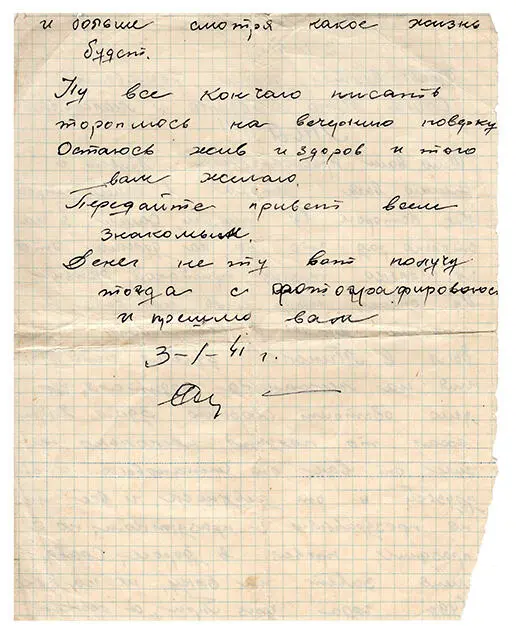 и больше смотря какое жизнь
будет.
Ну все кончаю писать
тороплюсь на вечернию поверку
Остаюсь жив и здоров и того
вам желаю.
Передайте привет всем
знакомым.
Денег нету вот получу
тогда с фотографироваюсь
и пришлю вам
3-/-41 г.